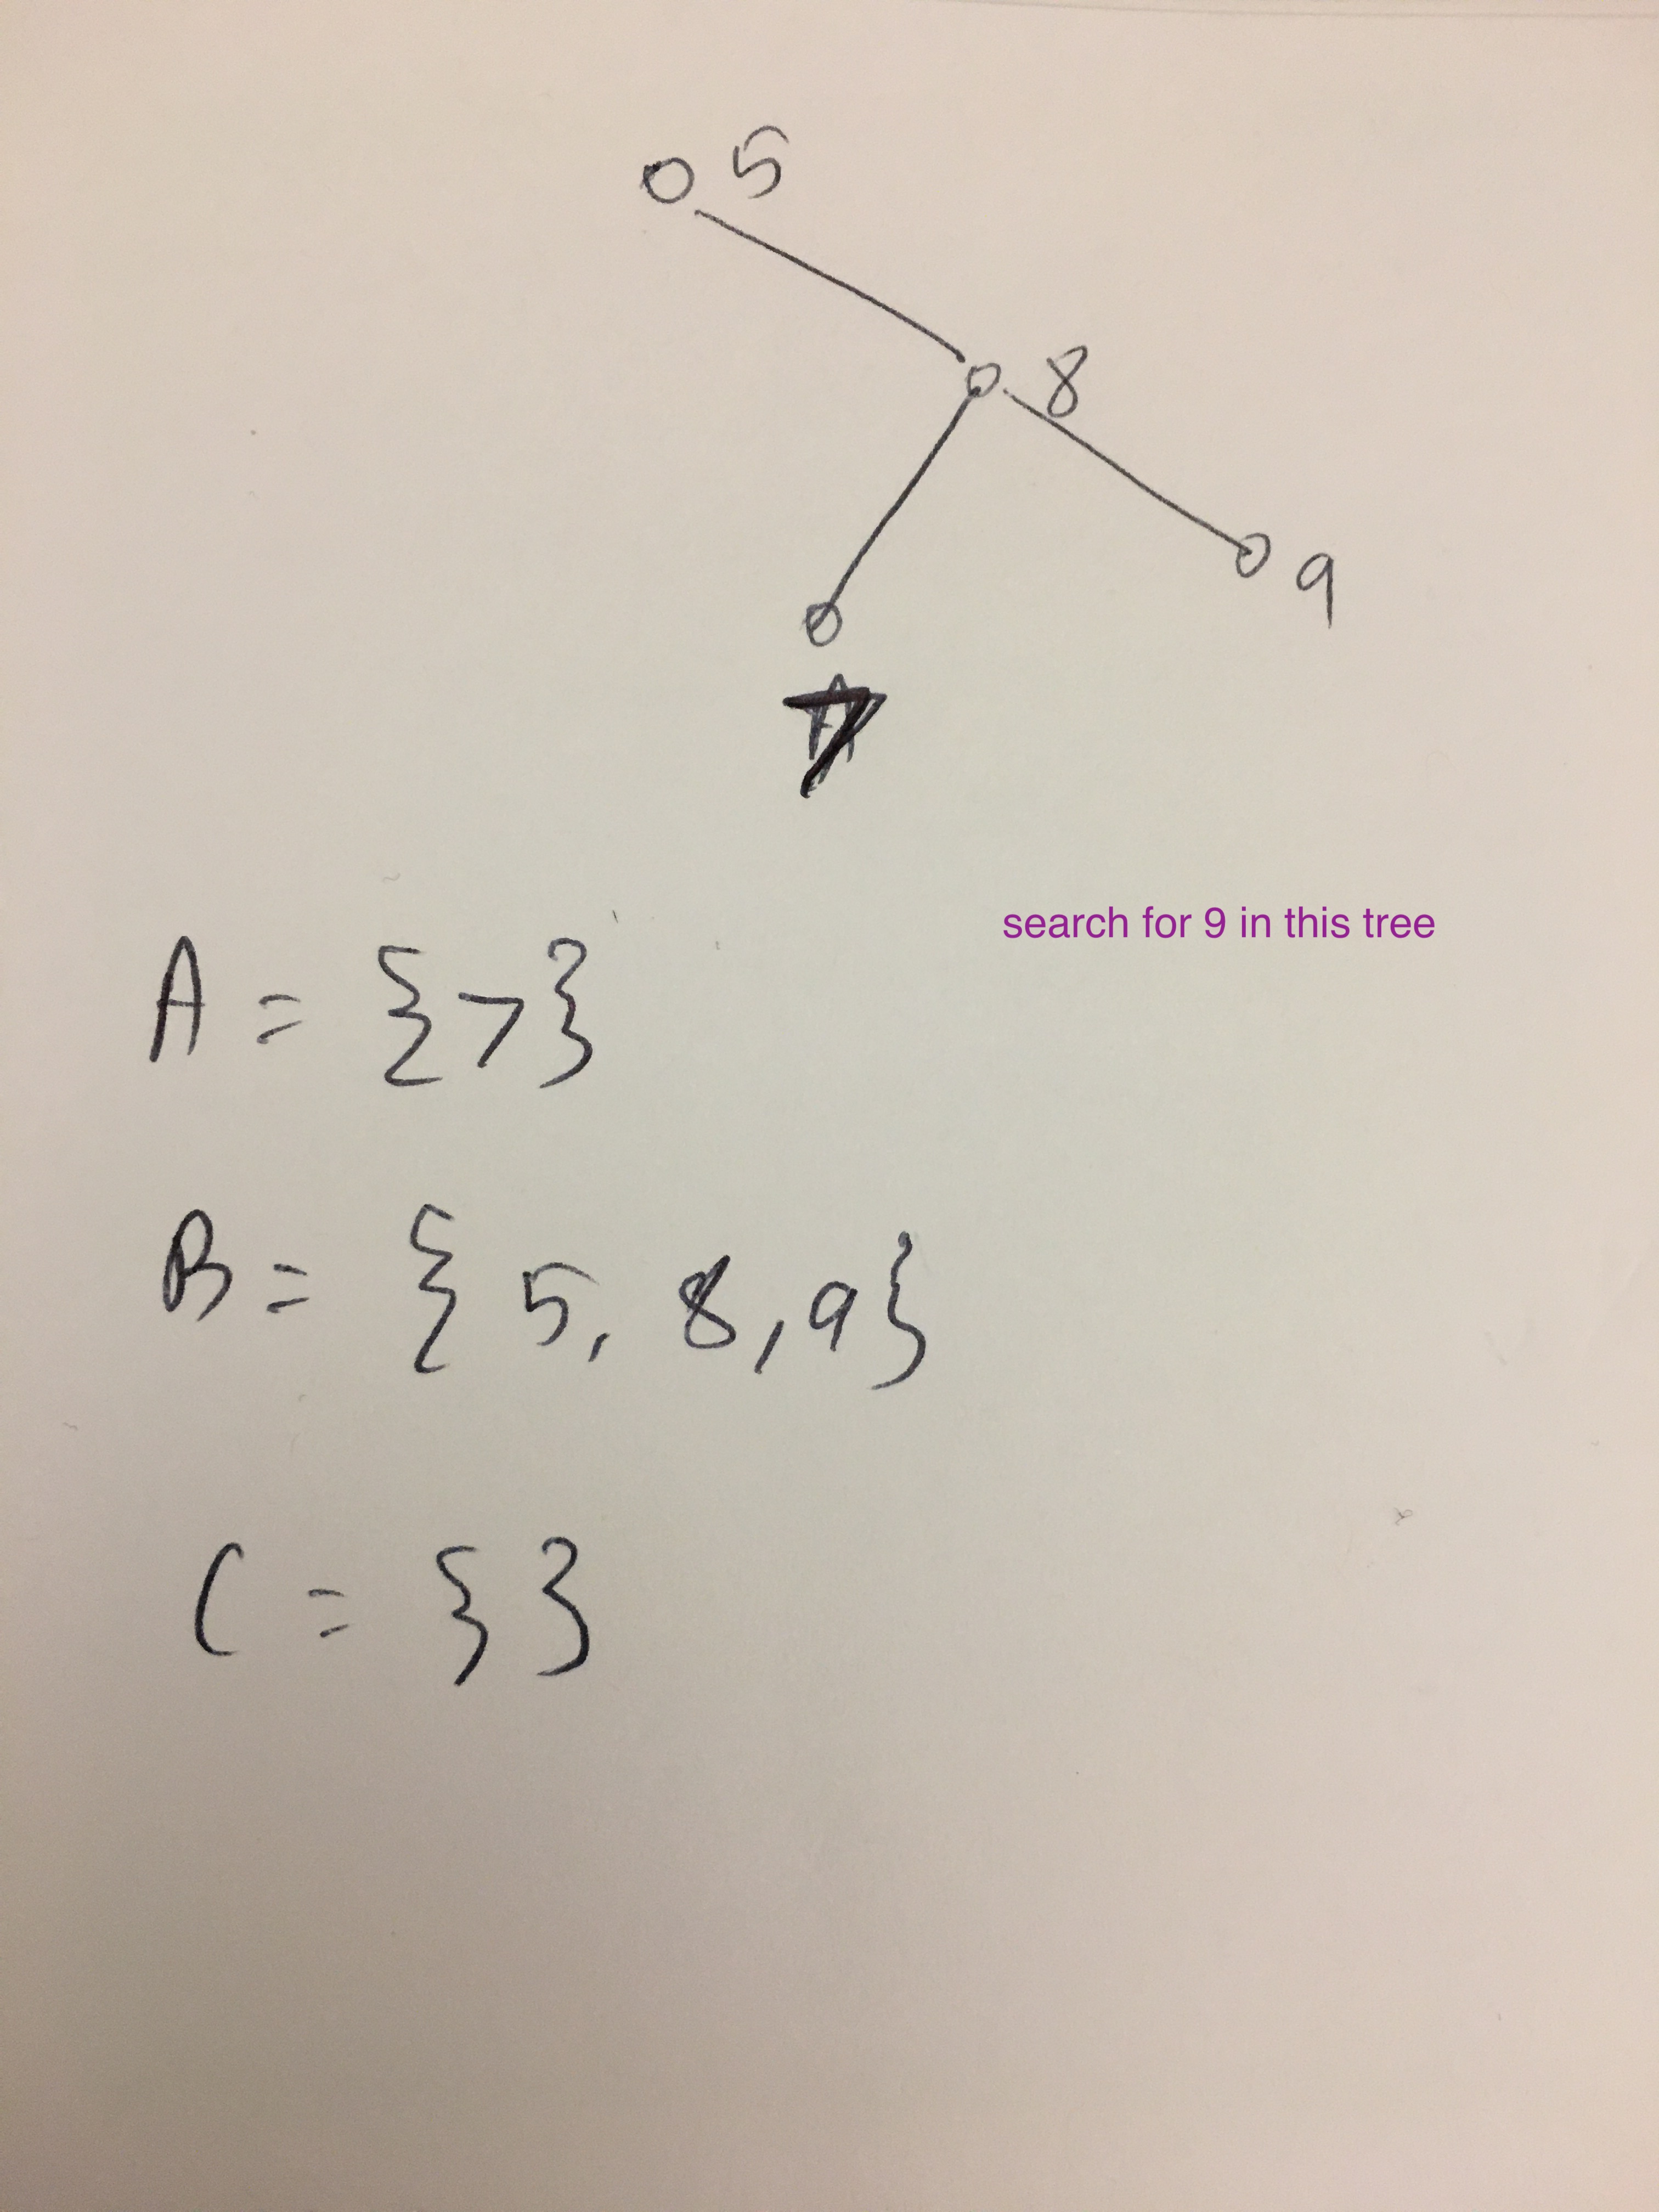 5
8
9
7
search for 9 in this tree
A = {7}
B = {5, 8, 9}
C = {}